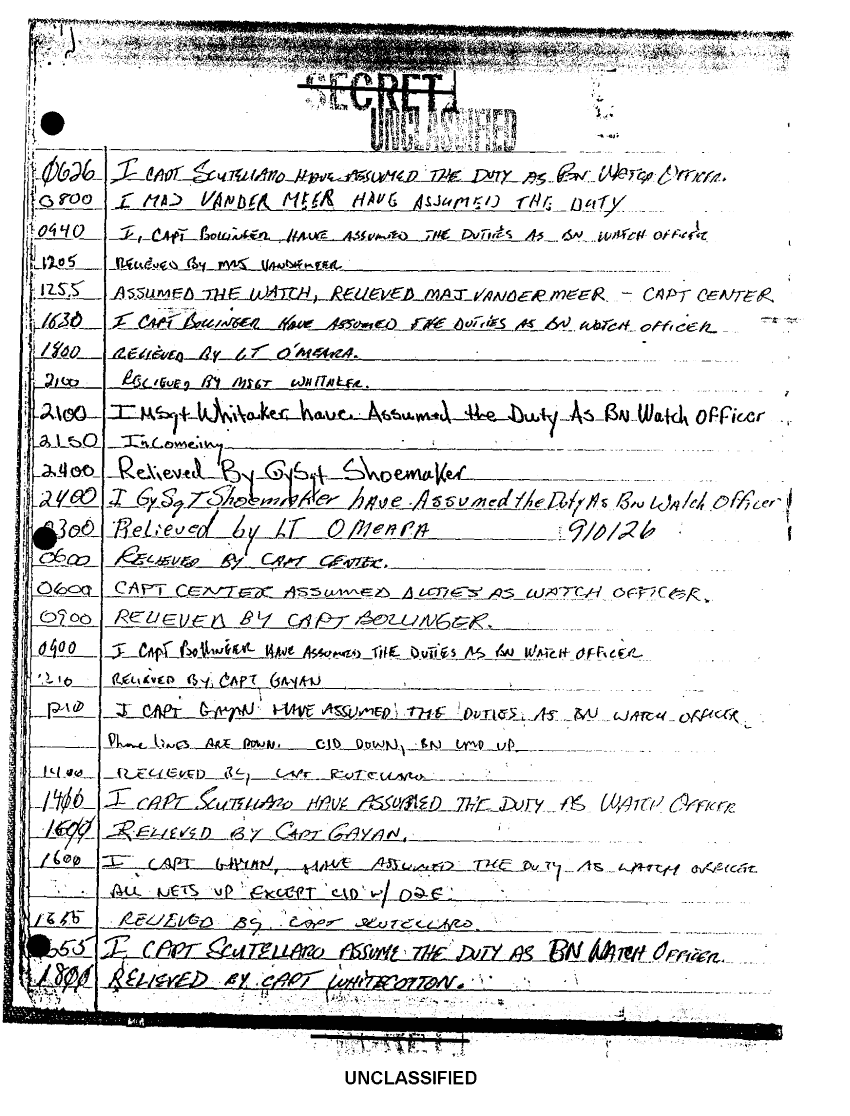 SECRET
UNCLASSIFIED
0626 I CAPT SCUTELLARO HAVE ASSUMED THE DUTY AS BN WATCH OFFICER.
0800 I MAJ VANDER MEER HAVE ASSUMED THE DUTY
0940 I, CAPT BOLLINGER HAVE ASSUMED THE DUTIES AS BN WATCH OFFICER
1205 RELIEVED BY MAJ VANDEMEER
1255 ASSUMED THE WATCH, RELIEVED MAJ VANDER MEER - CAPT CENTER
1630 I CAPT BOLLINGER HAVE ASSUMED THE DUTIES AS BN WATCH OFFICER
1800 RELIEVED BY LT O'MEARA.
2100 RELIEVED BY MSGT WHITTAKER.
2100 I MSgt Whitaker have Assumed the Duty As BN Watch Officer
2150 Incomeing
2400 Relieved By GySgt Shoemaker
2400 I GySgT Shoemaker have Assumed the Duty As BN Watch Officer
0300 Relieved by LT OMEARA 910126
0600 RELIEVED BY CAPT CENTER.
0600 CAPT CENTER ASSUMED DUTIES AS WATCH OFFICER.
0900 RELIEVED BY CAPT BOLLINGER.
0900 I CAPT BOLLINGER HAVE ASSUMED THE DUTIES AS BN WATCH OFFICER
1210 RELIEVED BY CAPT GAYAN
1210 I CAPT GAYAN HAVE ASSUMED THE DUTIES AS BN WATCH OFFICER.
Phone lines ARE DOWN. CID DOWN, BN CMD UP
1400 RELIEVED BY CAPT
1400 I CAPT SCUTELLARO HAVE ASSUMED THE DUTY AS WATCH OFFICER
1600 RELIEVED BY CAPT GAYAN.
1600 I CAPT GAYAN, HAVE ASSUMED THE DUTY AS WATCH OFFICER
ALL NETS UP EXCEPT CID W/
RELIEVED BY CAPT SCUTELLARO.
I CAPT SCUTELLARO ASSUME THE DUTY AS BN WATCH OFFICER.
1800 RELIEVED BY CAPT WHITECOTTON.
UNCLASSIFIED